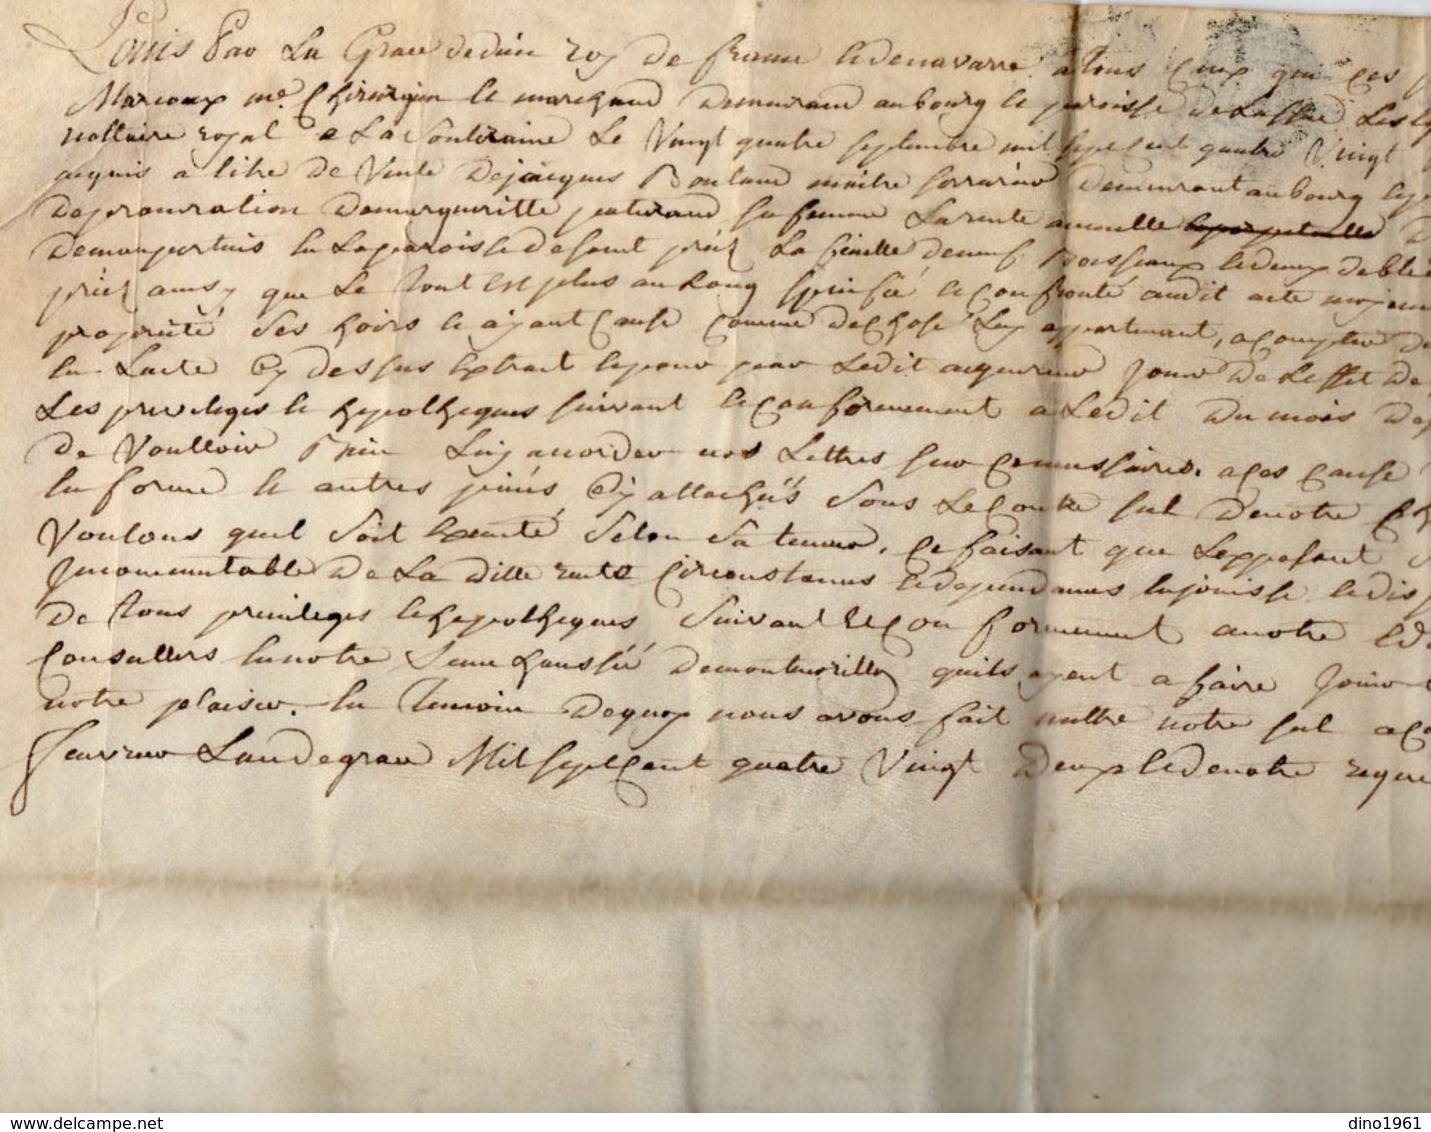 Louis Par La Grace de dieu roy de france et de navarre a tous Ceux que ces
Marcoux me. Chirurgien et marchand demeurant au bourg et paroisse de Les
nottaire royal a La Souterraine Le Vingt quatre septembre mil sept cent quatre Vingt
acquis a titre de Vente de jacques Boutaud maitre serrurier demeurant au bourg et
de procuration de margueritte sa femme La rente annuelle et perpetuelle
en La paroisse de saint priez La Feuille de neuf Boisseaux et deux de bled
priez ainsy que Le tout est plus au Long speciffié et Confronté audit acte
proprieté ses hoirs et ayant Cause Comme de Chose Luy appartenant, a Compter de
en L'acte Cy dessus Extrait et pour par Ledit acquereur jouir de L'effet de
Les privileges et hypotheques suivant et Conformement a Ledit du mois de
de Voulloir Bien Luy accorder nos Lettres sur Ce necessaires. a Ces Cause
en forme et autres pieces Cy attachés Sous Le Contre sel de notre
Voulons quel Soit Executé Selon Sa teneur. Ce faisant que L'exposant
jncommutable de La ditte rente Circonstances et dependances en jouisse et
de tous privileges et hypotheques Suivant et Conformement a notre
Conseillers en notre Senechaussée de montmorillon quils ayent a faire jouir
notre plaisir. En Temoin de quoy nous avons fait mettre notre sel a
fevrier L'an de grace Mil sept Cent quatre Vingt deux et de notre
delcampe.net
dino1961